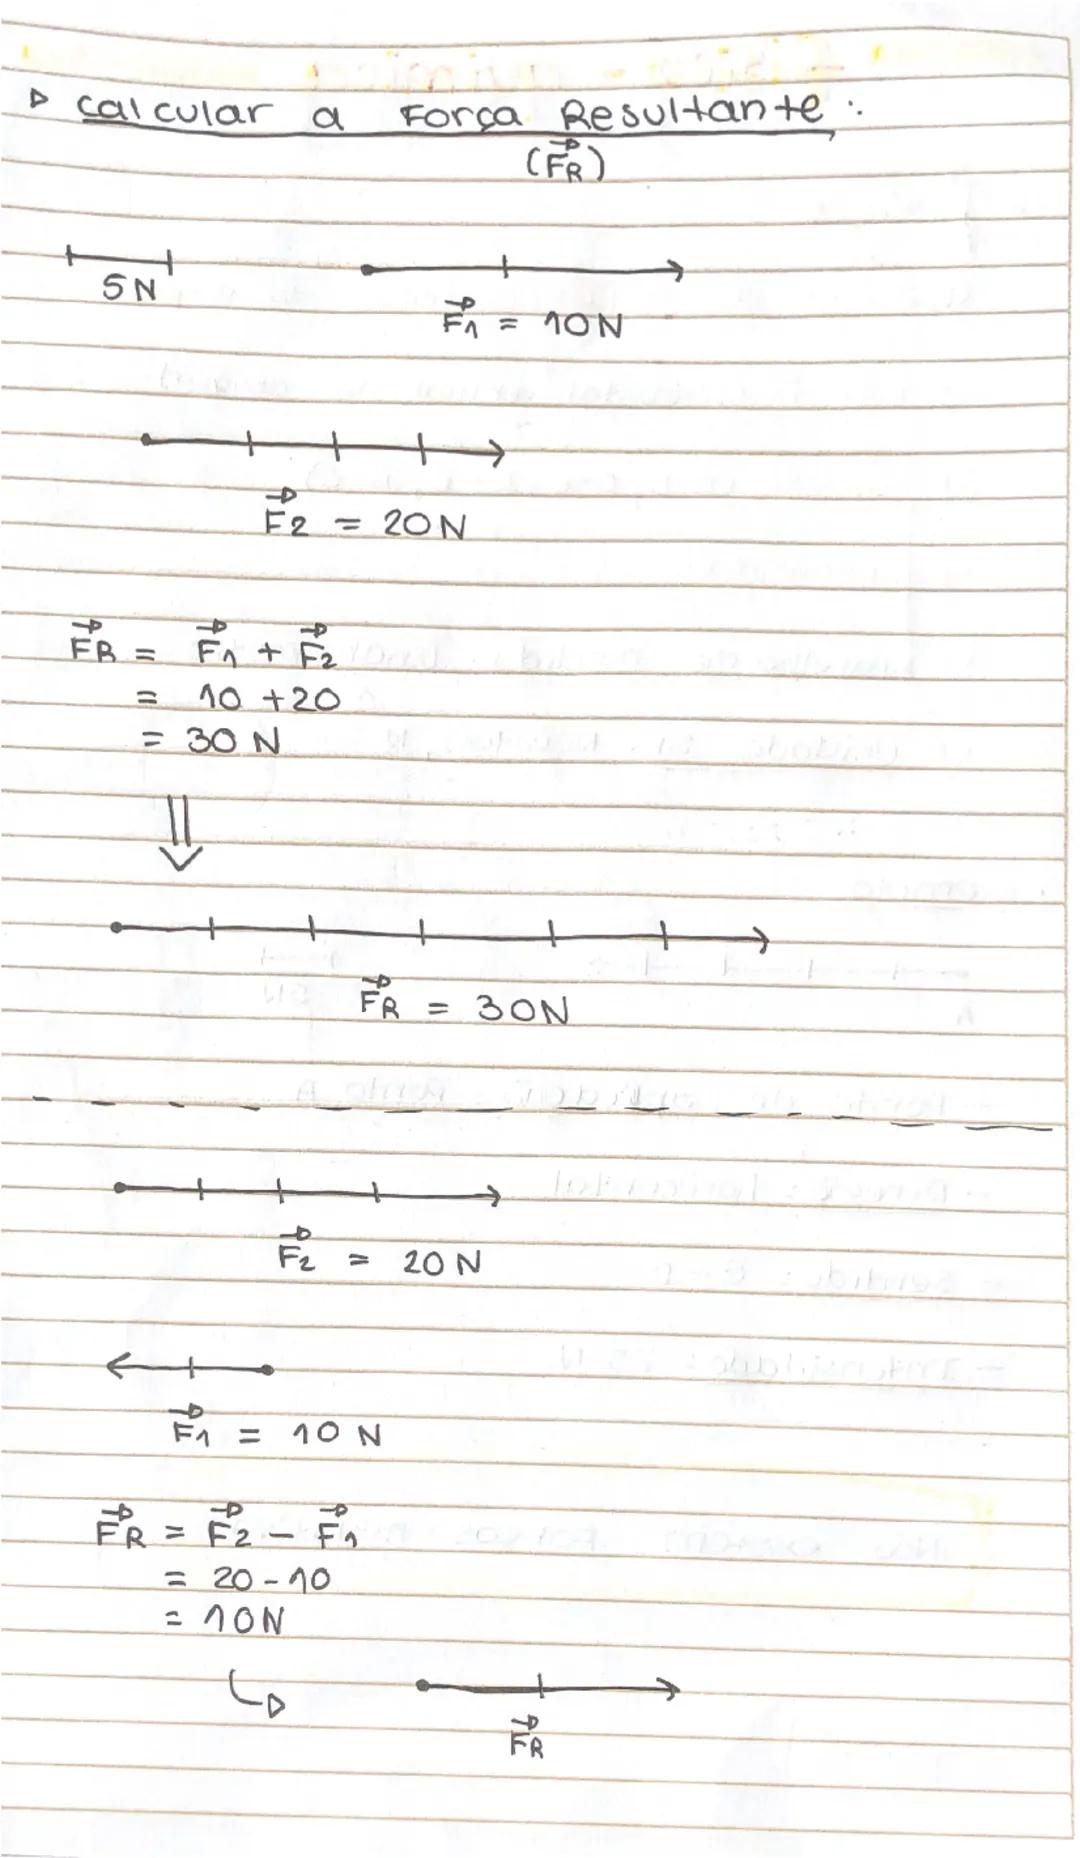 ▷ calcular a Força Resultante:
(F⃗R)
5N
F⃗1 = 10N
F⃗2 = 20N
F⃗R = F⃗1 + F⃗2
= 10 + 20
= 30 N
F⃗R = 30N
F⃗2 = 20N
F⃗1 = 10 N
F⃗R = F⃗2 - F⃗1
= 20 - 10
= 10N
F⃗R